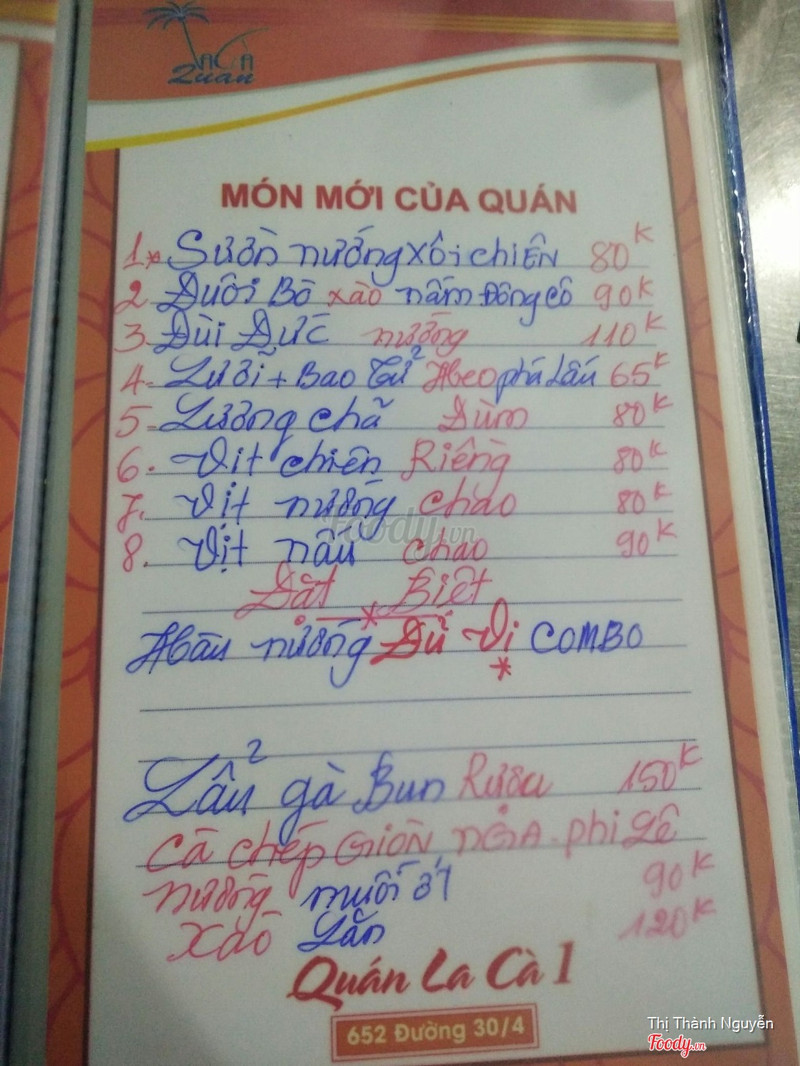 LACÀ
Quán
MÓN MỚI CỦA QUÁN
1. * Sườn nướng xôi chiên 80K
2 Đuôi Bò xào nấm Đông Cô 90K
3- Đùi Đức nướng 110K
4- Lưỡi + Bao Tử Heo phá lấu 65K
5- Lương chả Đùm 80K
6. Vịt chiên Riềng 80K
7. Vịt nướng chao 80K
8. Vịt nấu chao 90K
Đặt Biệt
Hàu nướng Đủ Vị COMBO
Foody.vn
Lẩu gà Bun Rượu 150K
Cá chép Giòn, phi Lê
nướng muối ớt 90K
Xào Lăn 120K
Quán La Cà 1
652 Đường 30/4
Thị Thành Nguyễn
Foody.vn